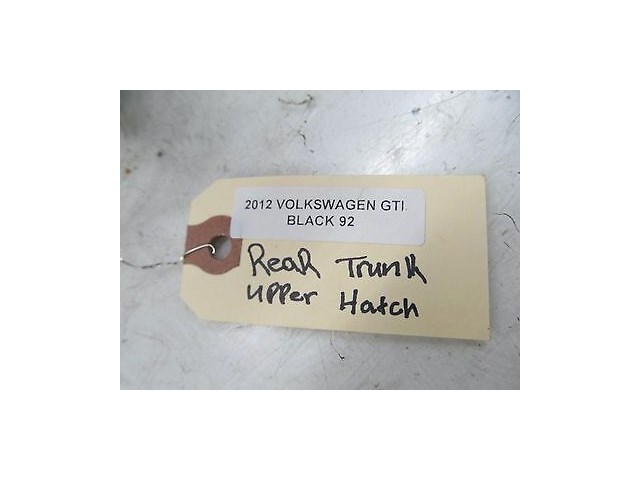 2012 VOLKSWAGEN GTI
BLACK 92
Rear Trunk
upper Hatch